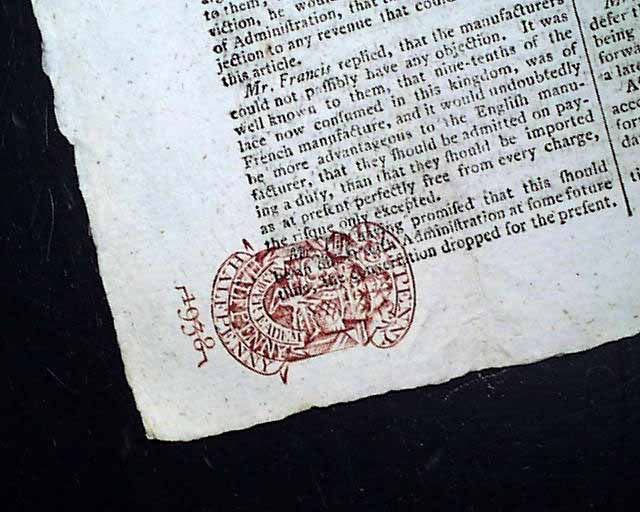 to them,
viction, he would
of Administration, that
jection to any revenue that could
this article.
Mr. Francis replied, that the manufacturers
could not possibly have any objection. It was
well known to them, that nine-tenths of the
lace now consumed in this kingdom, was of
French manufacture, and it would undoubtedly
be more advantageous to the English manu-
facturer, that they should be admitted on pay-
ing a duty, than that they should be imported
as at present perfectly free from every charge,
the risque only excepted.
being promised that this should
Administration at some future
tion dropped for the present.
defer
being
forwa
a late
A
acco
for
da
ti
HALFPENNY